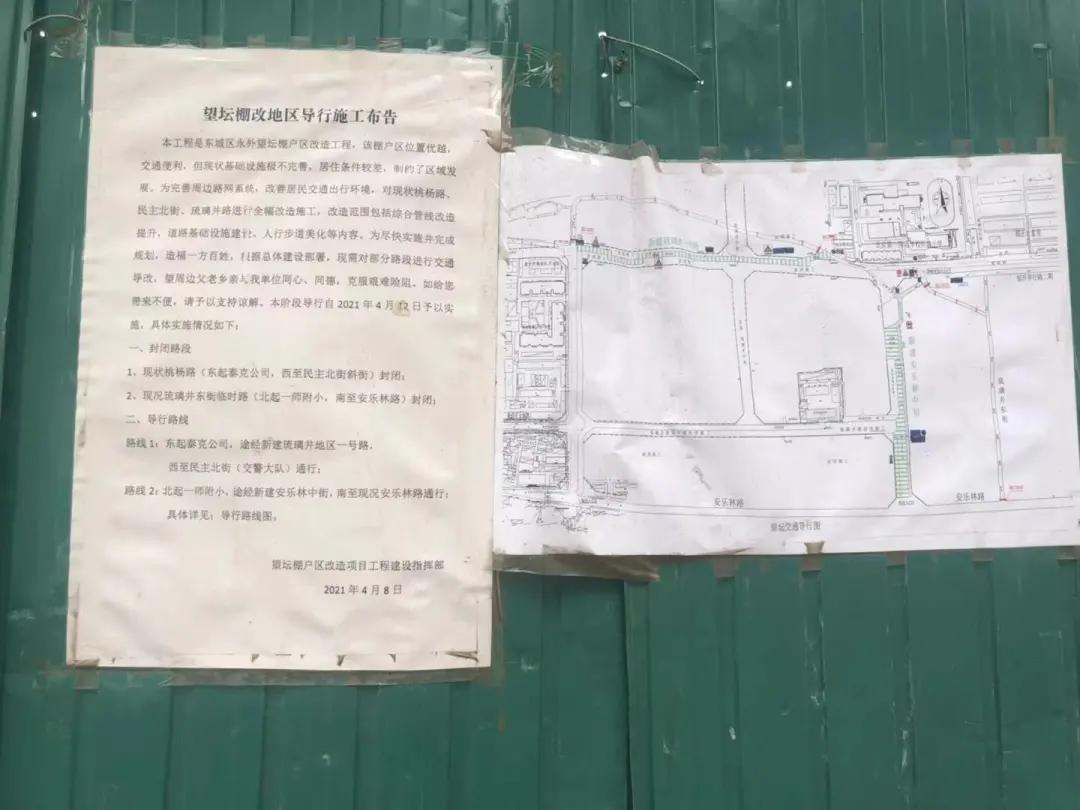 望坛棚改地区导行施工布告
本工程是东城区永外望坛棚户区改造工程，该棚户区位置优越，
交通便利，但现状基础设施极不完善，居住条件较差，制约了区域发
展。为完善周边路网系统，改善居民交通出行环境，对现状桃杨路、
民主北街、琉璃井路进行全幅改造施工，改造范围包括综合管线改造
提升，道路基础设施建设、人行步道美化等内容。为尽快实施并完成
规划，造福一方百姓，根据总体建设部署，现需对部分路段进行交通
导改，望周边父老乡亲与我单位同心、同德，克服艰难险阻。如给您
带来不便，请予以支持谅解。本阶段导行自2021年4月12日予以实
施，具体实施情况如下：
一、封闭路段
1、现状桃杨路（东起泰克公司，西至民主北街斜街）封闭；
2、现况琉璃井东街临时路（北起一师附小，南至安乐林路）封闭；
二、导行路线
路线1：东起泰克公司，途经新建琉璃井地区一号路，
西至民主北街（交警大队）通行；
路线2：北起一师附小、途经新建安乐林中街，南至现况安乐林路通行；
具体详见：导行路线图。
望坛棚户区改造项目工程建设指挥部
2021年4月8日
新建安乐林中街
琉璃井东街
安乐林路
安乐林路
望坛交通导行图